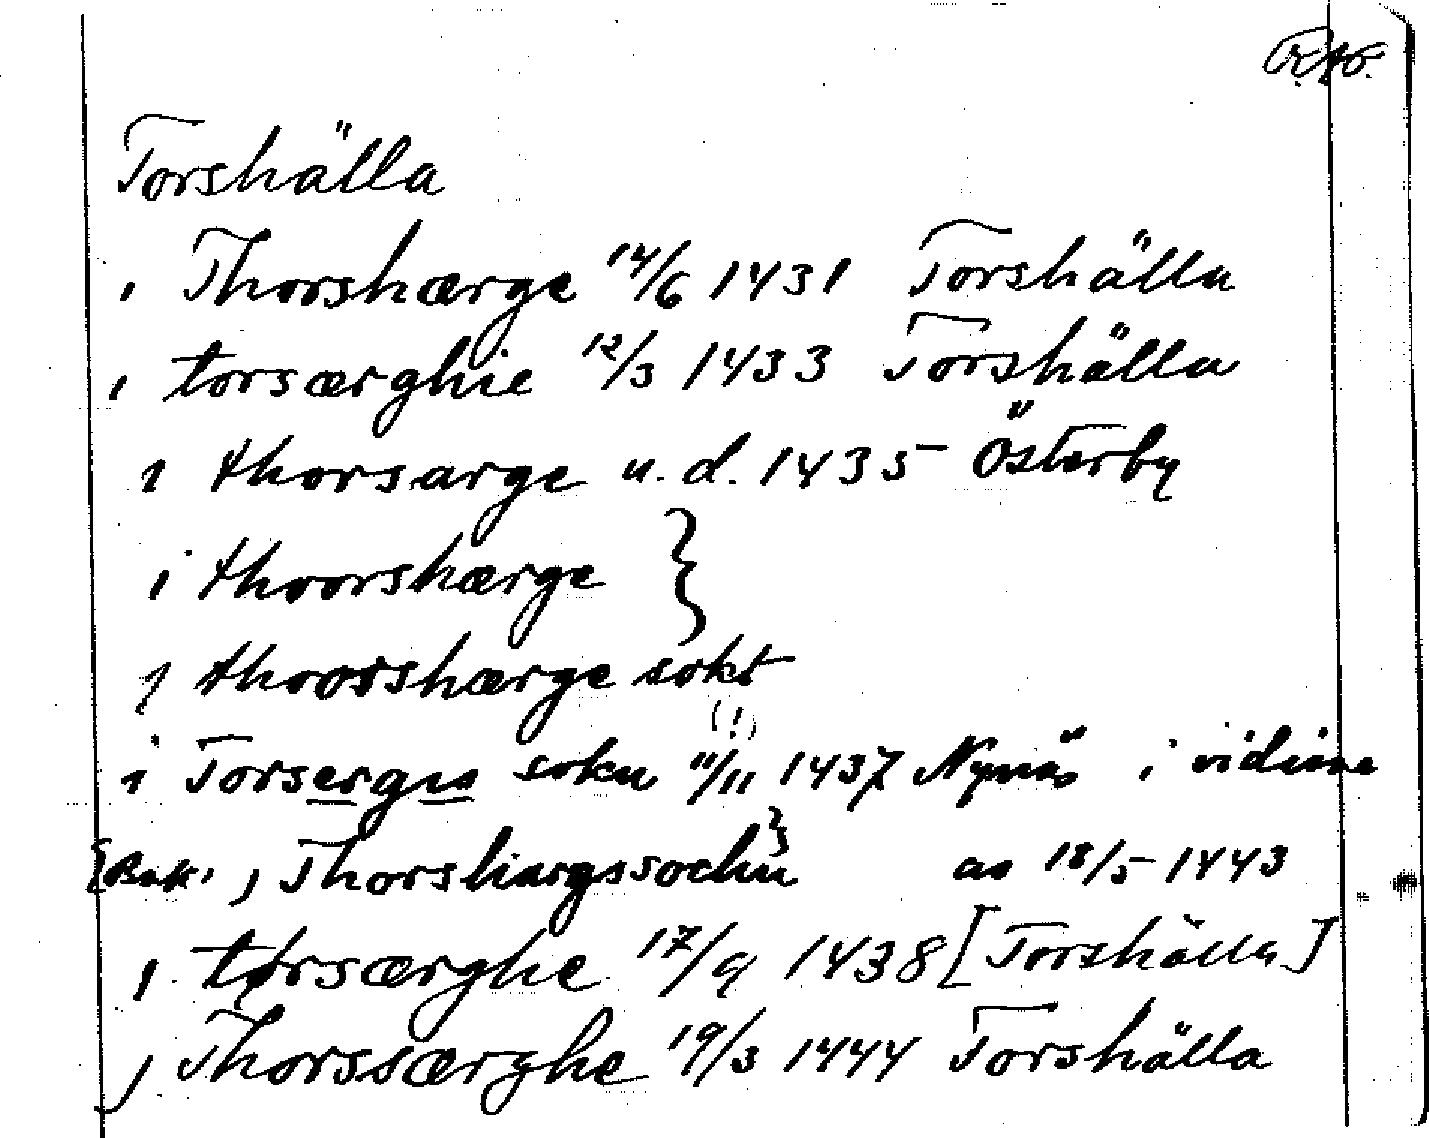 RAO.
Torshälla
ı Thorshærge 14/6 1431 Torshälla
ı torsærghie 12/3 1433 Torshälla
ı thorsarge u.d. 1435 Österby
i thoorshærge }
j thoorshærge sokt
(!)
i Torsergis sokn 11/11 1437 Nynäs i vidime
[Bak: j Thorshargssochn as 18/5 1443
ı tørsærghe 17/9 1438 [Torshälla]
j Thorssærghe 19/3 1444 Torshälla